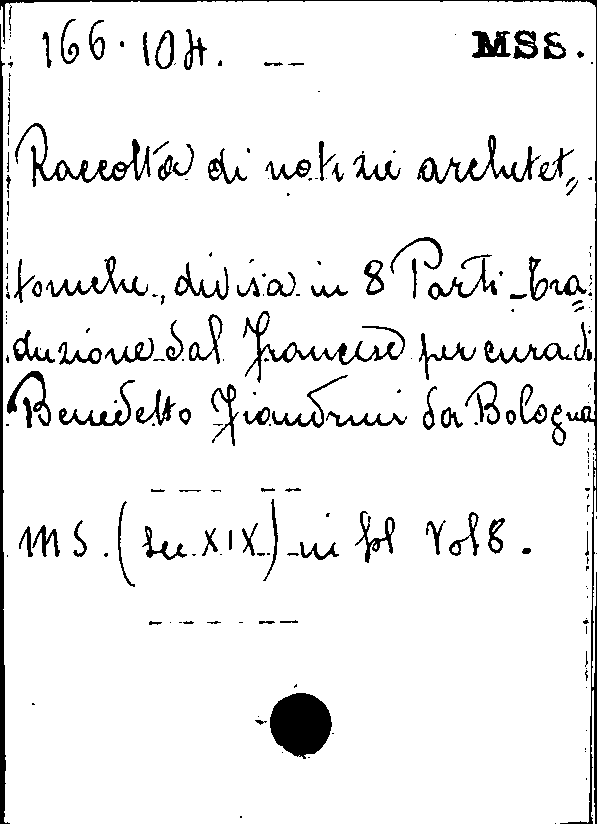 166.104. MSS.
Raccolta di notizie architet=
toniche, divisa in 8 Parti - Tra=
duzione dal Francese per cura di
Benedetto da Bologna
MS. (sec XIX) in fol Vol 8.